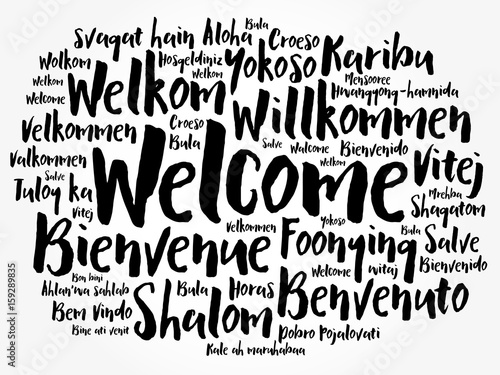 Bula
Svagat hain Aloha Croeso Karibu
Wolkom Hosgeldiniz Yokoso
Welkom Welkom Mensooree
Welcome Welkom Willkommen Hwangyong-hamnida
Velkommen Croeso
Bula Salve Walcome Bienvenido Vitej
Valkommen Welcome Welkom
Salve Mrehba
Tuloy ka Shagatom
Vitej
Bienvenue Velkommen Yokoso Foonying Bula Salve
Bon bini Welcome witaj Bienvenido
Ahlan'wa sahlab Bula Horas Benvenuto
Bem vindo Shalom
Bine ati venit Dobro Pojalovati
Kale ah maruhabaa
159289835
Adobe Stock